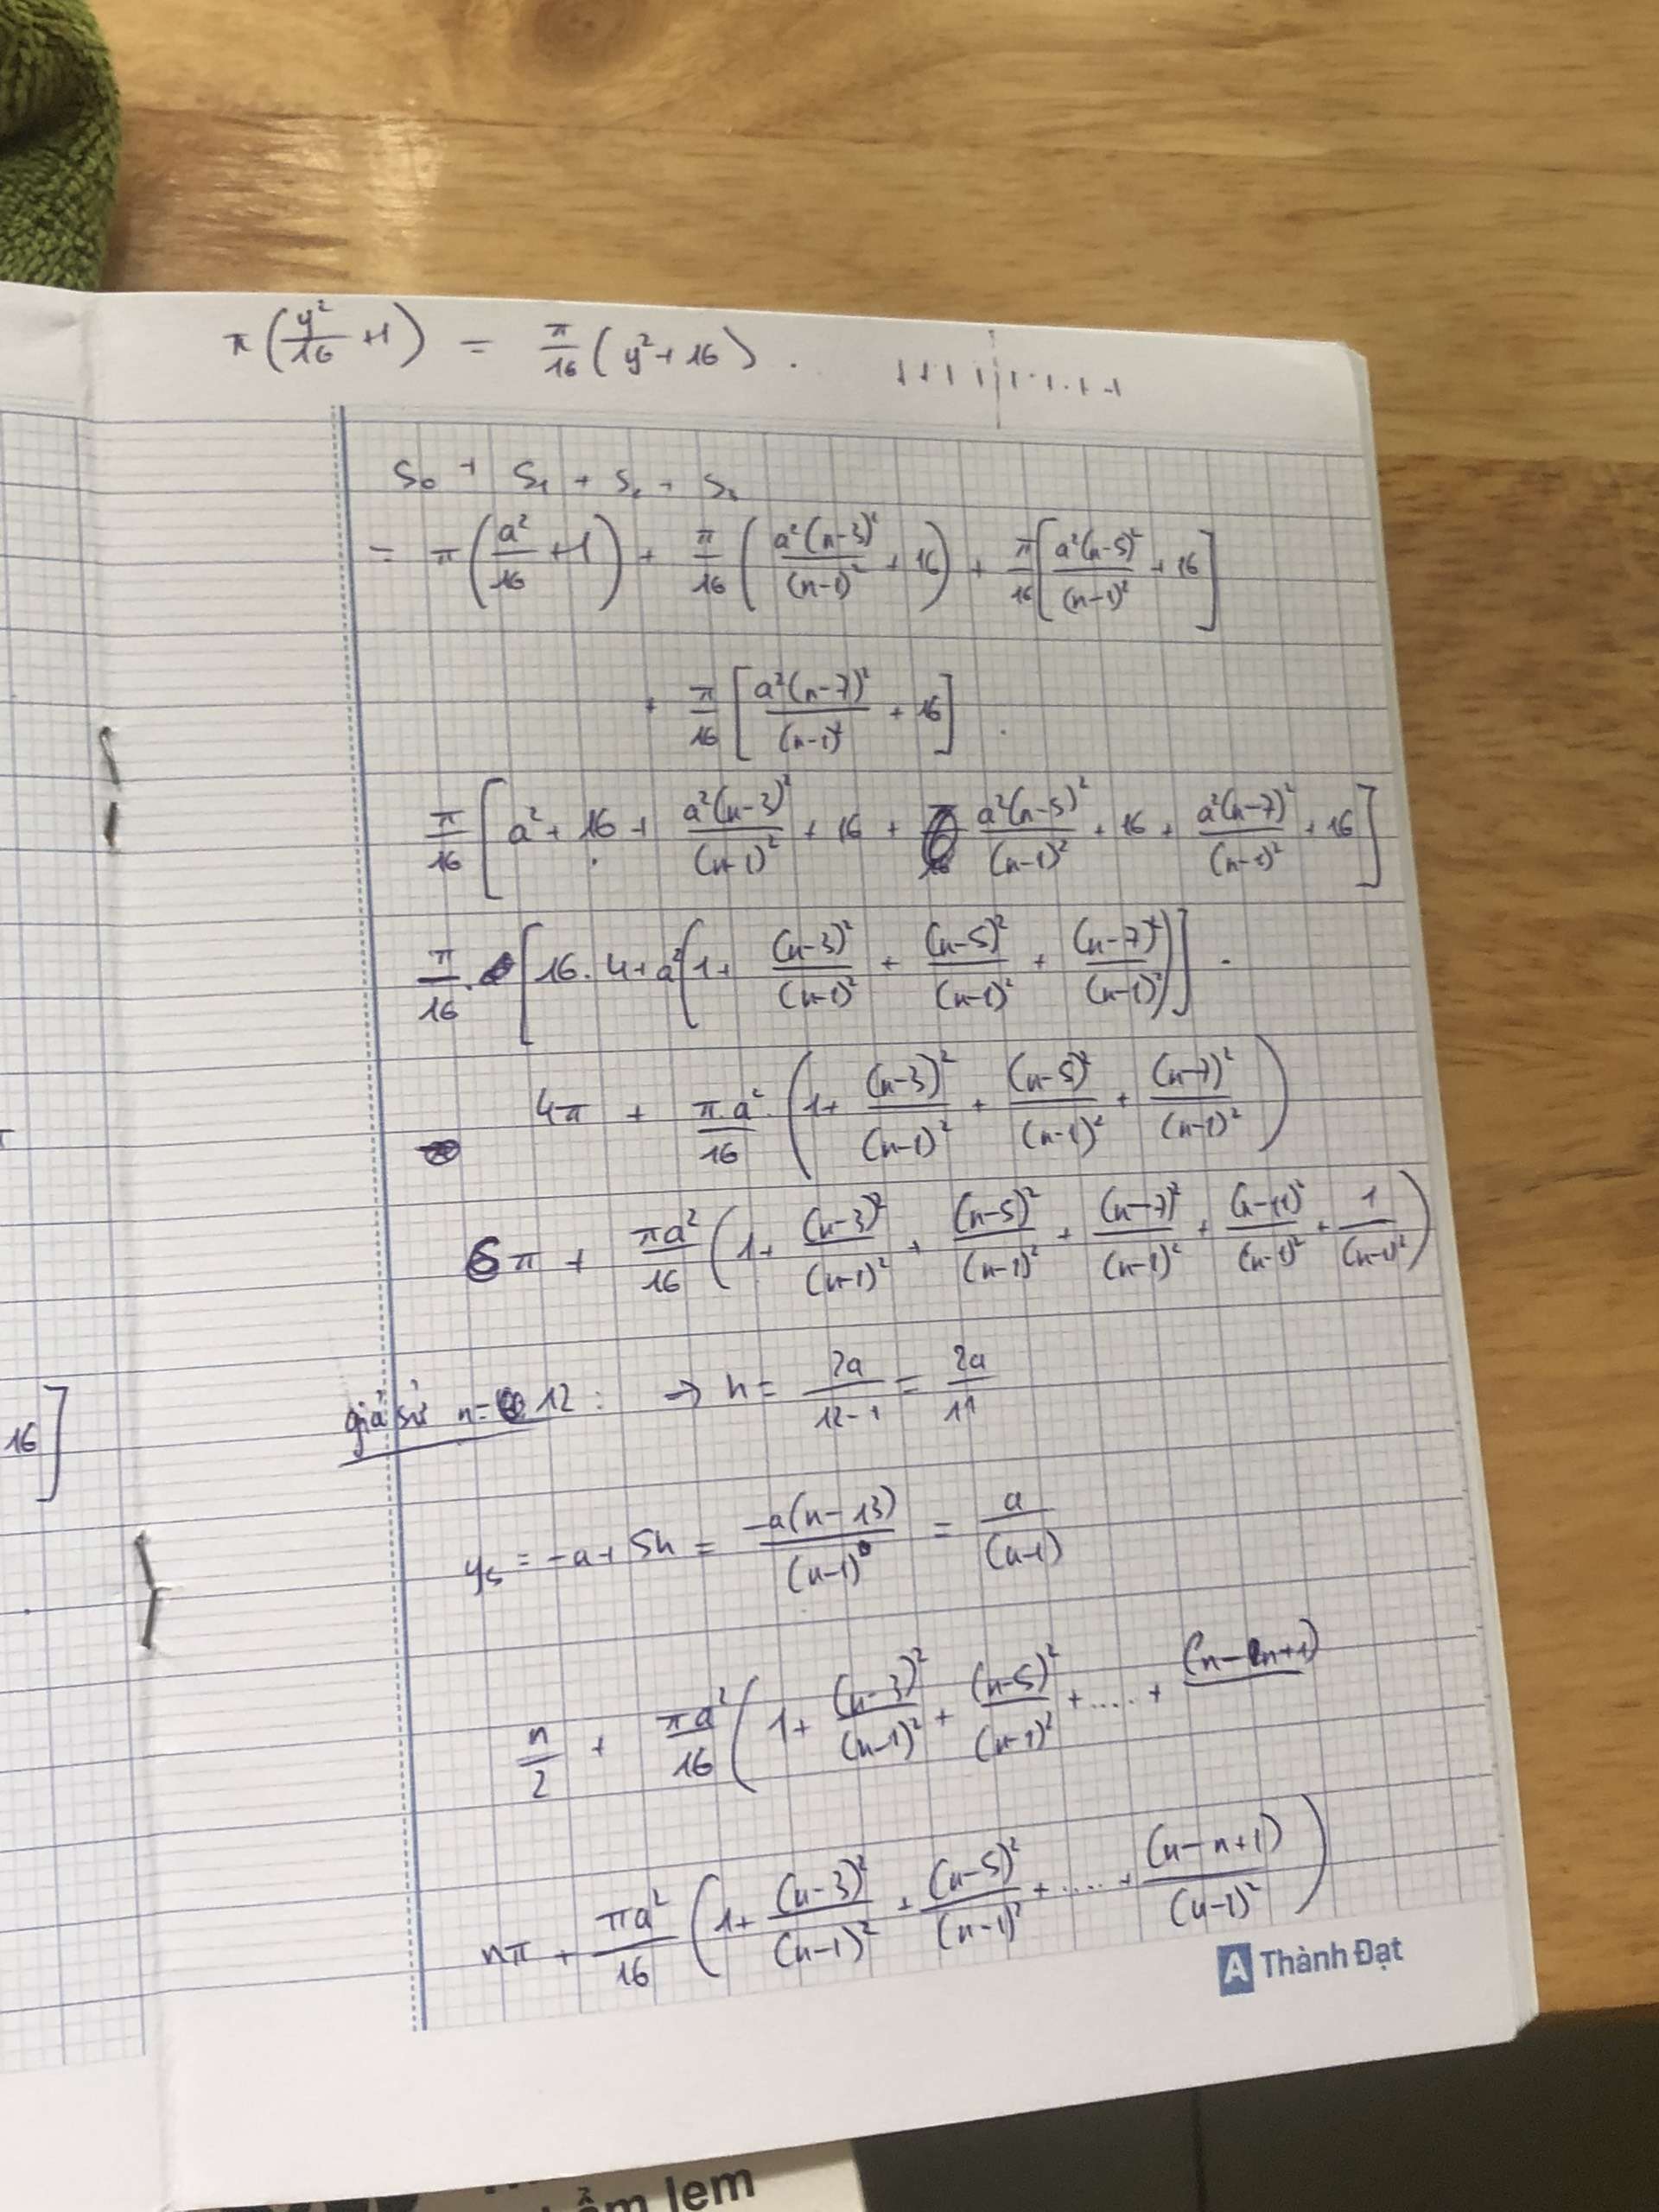 π(y²/16 + 1) = π/16 (y² + 16).
S₀ + S₁ + S₂ + S₃
= π(a²/16 + 1) + π/16 (a²(n-3)²/(n-1)² + 16) + π/16 [a²(n-5)²/(n-1)² + 16]
+ π/16 [a²(n-7)²/(n-1)² + 16].
π/16 [a² + 16 + a²(n-3)²/(n-1)² + 16 + a²(n-5)²/(n-1)² + 16 + a²(n-7)²/(n-1)² + 16]
π/16 . [16.4 + a²(1 + (n-3)²/(n-1)² + (n-5)²/(n-1)² + (n-7)²/(n-1)²)].
4π + πa²/16 . (1 + (n-3)²/(n-1)² + (n-5)²/(n-1)² + (n-7)²/(n-1)²)
6π + πa²/16 (1 + (n-3)²/(n-1)² + (n-5)²/(n-1)² + (n-7)²/(n-1)² + (n-11)²/(n-1)² + 1/(n-1)²)
giả sử n = 12 : → h = 2a/(12-1) = 2a/11
16]
y₅ = -a + 5h = -a(n-13)/(n-1) = a/(n-1)
n/2 + πa²/16 (1 + (n-3)²/(n-1)² + (n-5)²/(n-1)² + .... +
nπ + πa²/16 (1 + (n-3)²/(n-1)² + (n-5)²/(n-1)² + .... + (n-n+1)/(n-1)²)
A Thành Đạt
lem